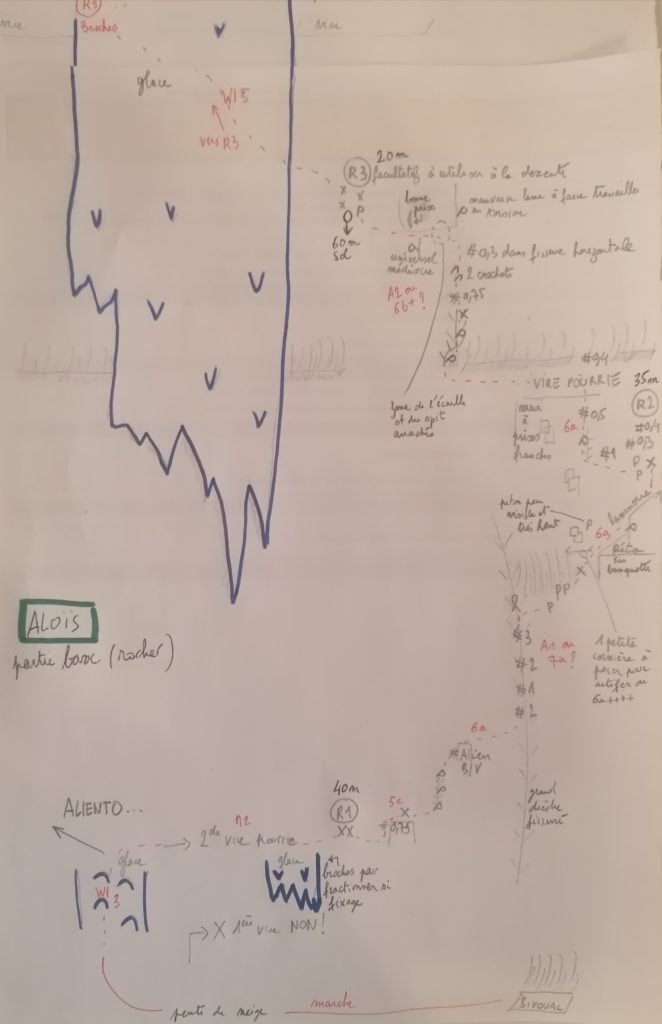 R3
Broches
vire
glace
WI5
vers R3
20m
R3
facultatif à utiliser à la descente
P
60m
sol
bonne
prise
mauvaise lame à faire travailler
en torsion
universel
médiocre
A2 ou
6b+?
#0,3 dans fissure horizontale
2 crochets
#0,75
#0,4
VIRE POURRIE
35m
R2
zone de l'écaille
et du spit
arrachés
mur
à
prises
franches
6a
#0,5
#1
#0,4
#0,3
P
P
piton peu
visible et
très haut
P
6a
baignoire
Réta
sur
banquette
PP
P
ALOÏS
partie basse (rocher)
#3
#2
#1
#2
A1 ou
7a?
1 petite
cornière à
poser pour
artifer ou
6a++++
6a
#Alien
B/V
grand
dièdre
fissuré
40m
R1
XX
5c
#0,75
ALIENTO...
M2
2de vire pourrie
glace
WI
3
glace
broches pour
fractionner si
fixage
X 1ère vire NON!
pente de neige
marche
BIVOUAC